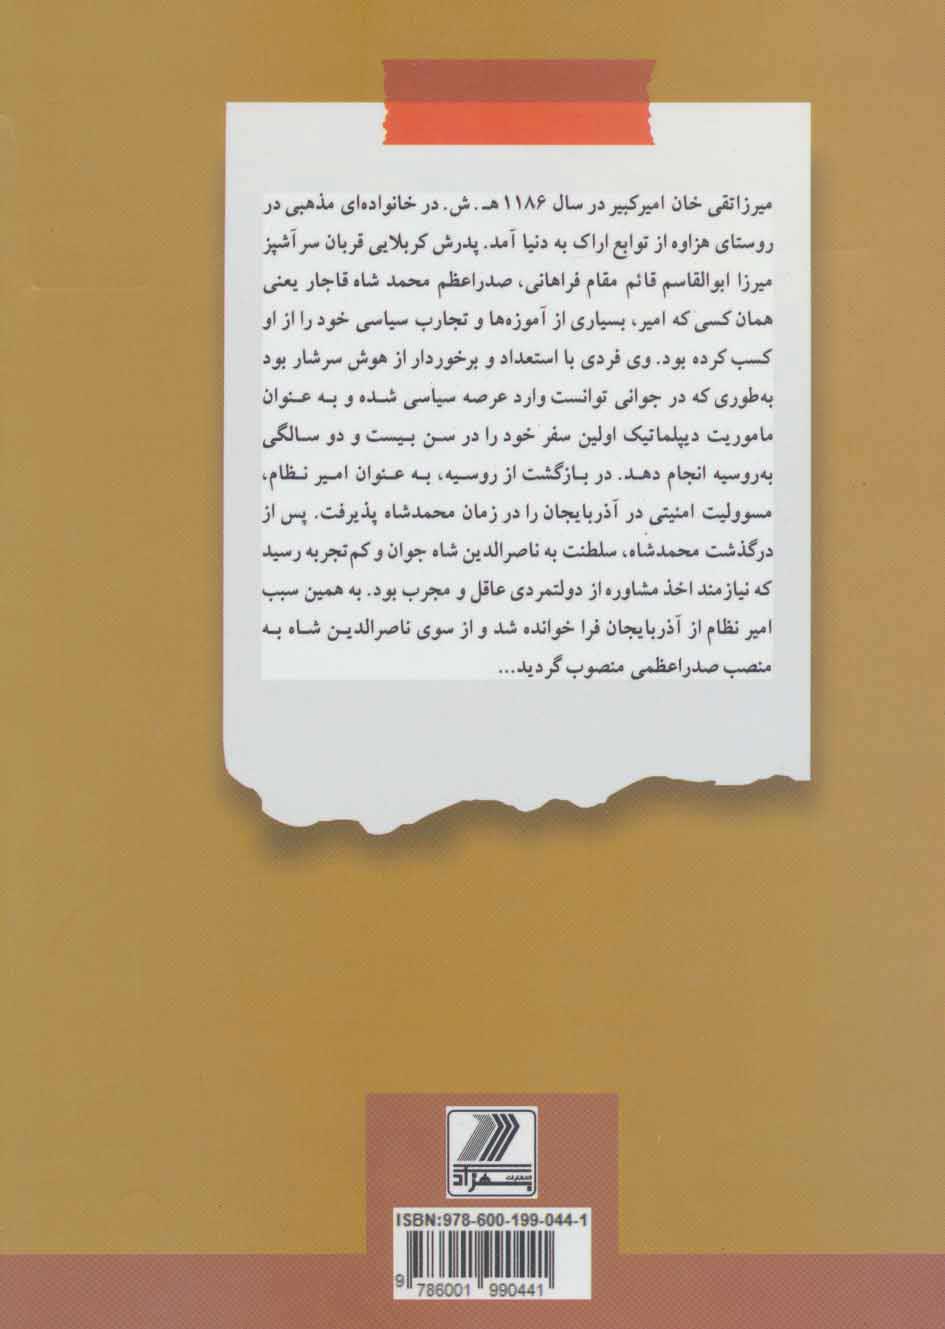 میرزاتقی خان امیرکبیر در سال ۱۱۸۶ هـ . ش. در خانواده‌ای مذهبی در
روستای هزاوه از توابع اراک به دنیا آمد. پدرش کربلایی قربان سر آشپز
میرزا ابوالقاسم قائم مقام فراهانی، صدراعظم محمد شاه قاجار یعنی
همان کسی که امیر، بسیاری از آموزه‌ها و تجارب سیاسی خود را از او
کسب کرده بود. وی فردی با استعداد و برخوردار از هوش سرشار بود
به‌طوری که در جوانی توانست وارد عرصه سیاسی شده و به عنوان
ماموریت دیپلماتیک اولین سفر خود را در سن بیست و دو سالگی
به‌روسیه انجام دهد. در بازگشت از روسیه، به عنوان امیر نظام،
مسوولیت امنیتی در آذربایجان را در زمان محمدشاه پذیرفت. پس از
درگذشت محمدشاه، سلطنت به ناصرالدین شاه جوان و کم‌تجربه رسید
که نیازمند اخذ مشاوره از دولتمردی عاقل و مجرب بود. به همین سبب
امیر نظام از آذربایجان فرا خوانده شد و از سوی ناصرالدین شاه به
منصب صدراعظمی منصوب گردید...
بهزاد
ISBN:978-600-199-044-1
9 786001 990441